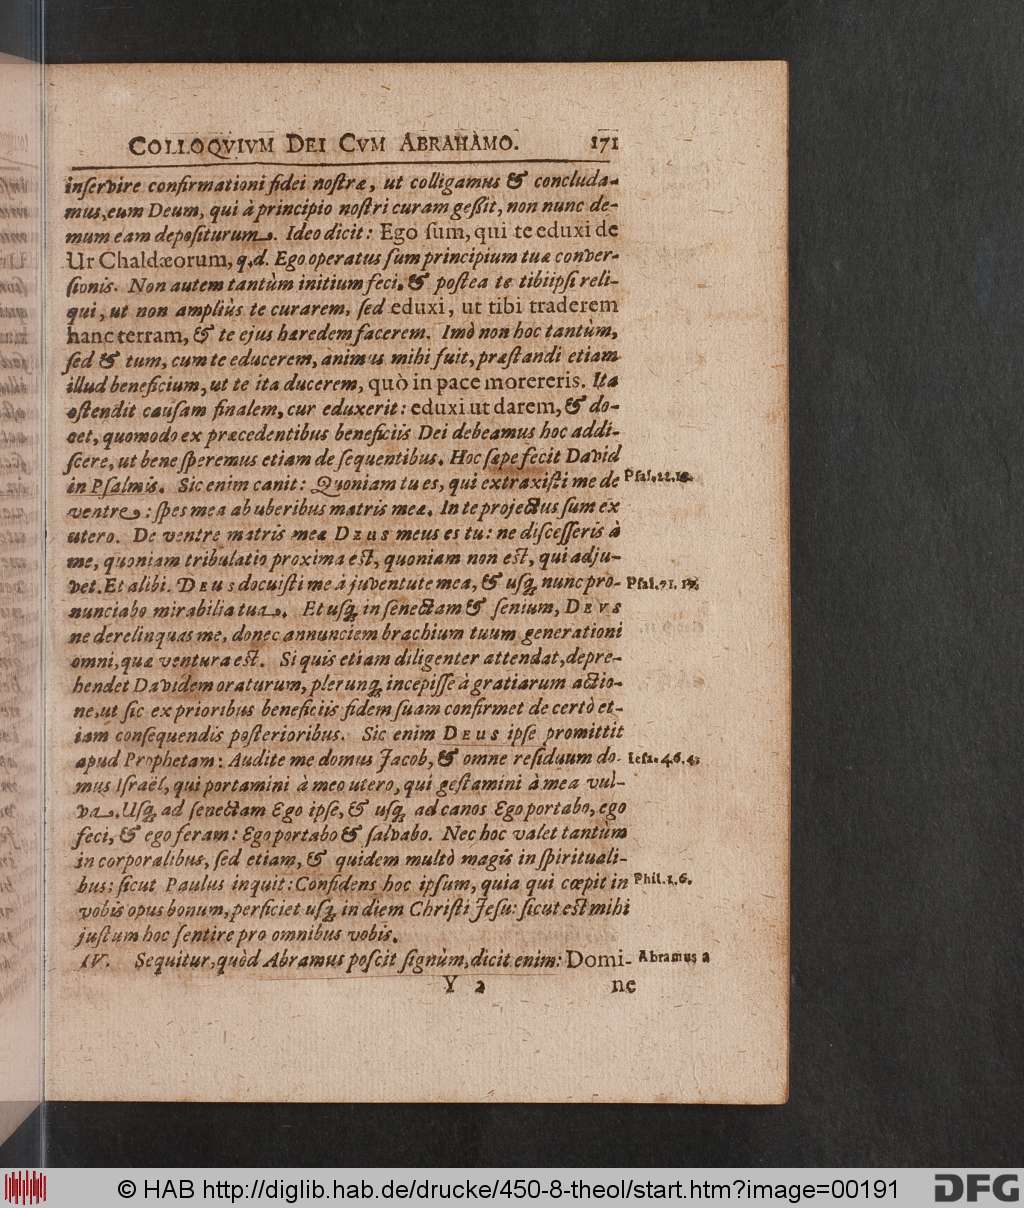 COLLOQVIVM DEI CVM ABRAHAMO. 171
inſervire confirmationi fidei noſtræ, ut colligamus & concluda-
mus, eum Deum, qui à principio noſtri curam geßit, non nunc de-
mum eam depoſiturum. Ideo dicit: Ego ſum, qui te eduxi de
Ur Chaldæorum, q.d. Ego operatus ſum principium tuæ conver-
ſionis. Non autem tantùm initium feci, & poſtea te tibiipſi reli-
qui, ut non ampliùs te curarem, ſed eduxi, ut tibi traderem
hanc terram, & te ejus hæredem facerem. Imò non hoc tantùm,
ſed & tum, cum te educerem, animus mihi fuit, præſtandi etiam
illud beneficium, ut te ita ducerem, quò in pace morereris. Ita
oſtendit cauſam finalem, cur eduxerit: eduxi ut darem, & do-
cet, quomodo ex præcedentibus beneficiis Dei debeamus hoc addi-
ſcere, ut bene ſperemus etiam de ſequentibus. Hoc ſæpe fecit David
in Pſalmis. Sic enim canit: Quoniam tu es, qui extraxiſti me de Pſal. 22. 10.
ventre: ſpes mea ab uberibus matris meæ. In te projectus ſum ex
utero. De ventre matris meæ DEUS meus es tu: ne diſceſſeris à
me, quoniam tribulatio proxima eſt, quoniam non eſt, qui adju-
vet. Et alibi. DEUS docuiſti me à juventute mea, & uſq; nunc pro- Pſal. 71. 17.
nunciabo mirabilia tua. Et uſq; in ſenectam & ſenium, DEVS
ne derelinquas me, donec annunciem brachium tuum generationi
omni, quæ ventura eſt. Si quis etiam diligenter attendat, depre-
hendet Davidem oraturum, plerunq; incepiſſe à gratiarum actio-
ne, ut ſic ex prioribus beneficiis fidem ſuam confirmet de certò et-
iam conſequendis poſterioribus. Sic enim DEUS ipſe promittit
apud Prophetam: Audite me domus Jacob, & omne reſiduum do- Ieſa. 46. 4.
mus Iſraël, qui portamini à meo utero, qui geſtamini à mea vul-
va. Uſq; ad ſenectam Ego ipſe, & uſq; ad canos Ego portabo, ego
feci, & ego feram: Ego portabo & ſalvabo. Nec hoc valet tantùm
in corporalibus, ſed etiam, & quidem multò magis in ſpirituali-
bus: ſicut Paulus inquit: Confidens hoc ipſum, quia qui cœpit in Phil. 1. 6.
vobis opus bonum, perficiet uſq; in diem Chriſti Jeſu: ſicut eſt mihi
juſtum hoc ſentire pro omnibus vobis.
IV. Sequitur, quòd Abramus poſcit ſignùm, dicit enim: Domi- Abramus a
Y 2 ne
© HAB http://diglib.hab.de/drucke/450-8-theol/start.htm?image=00191 DFG